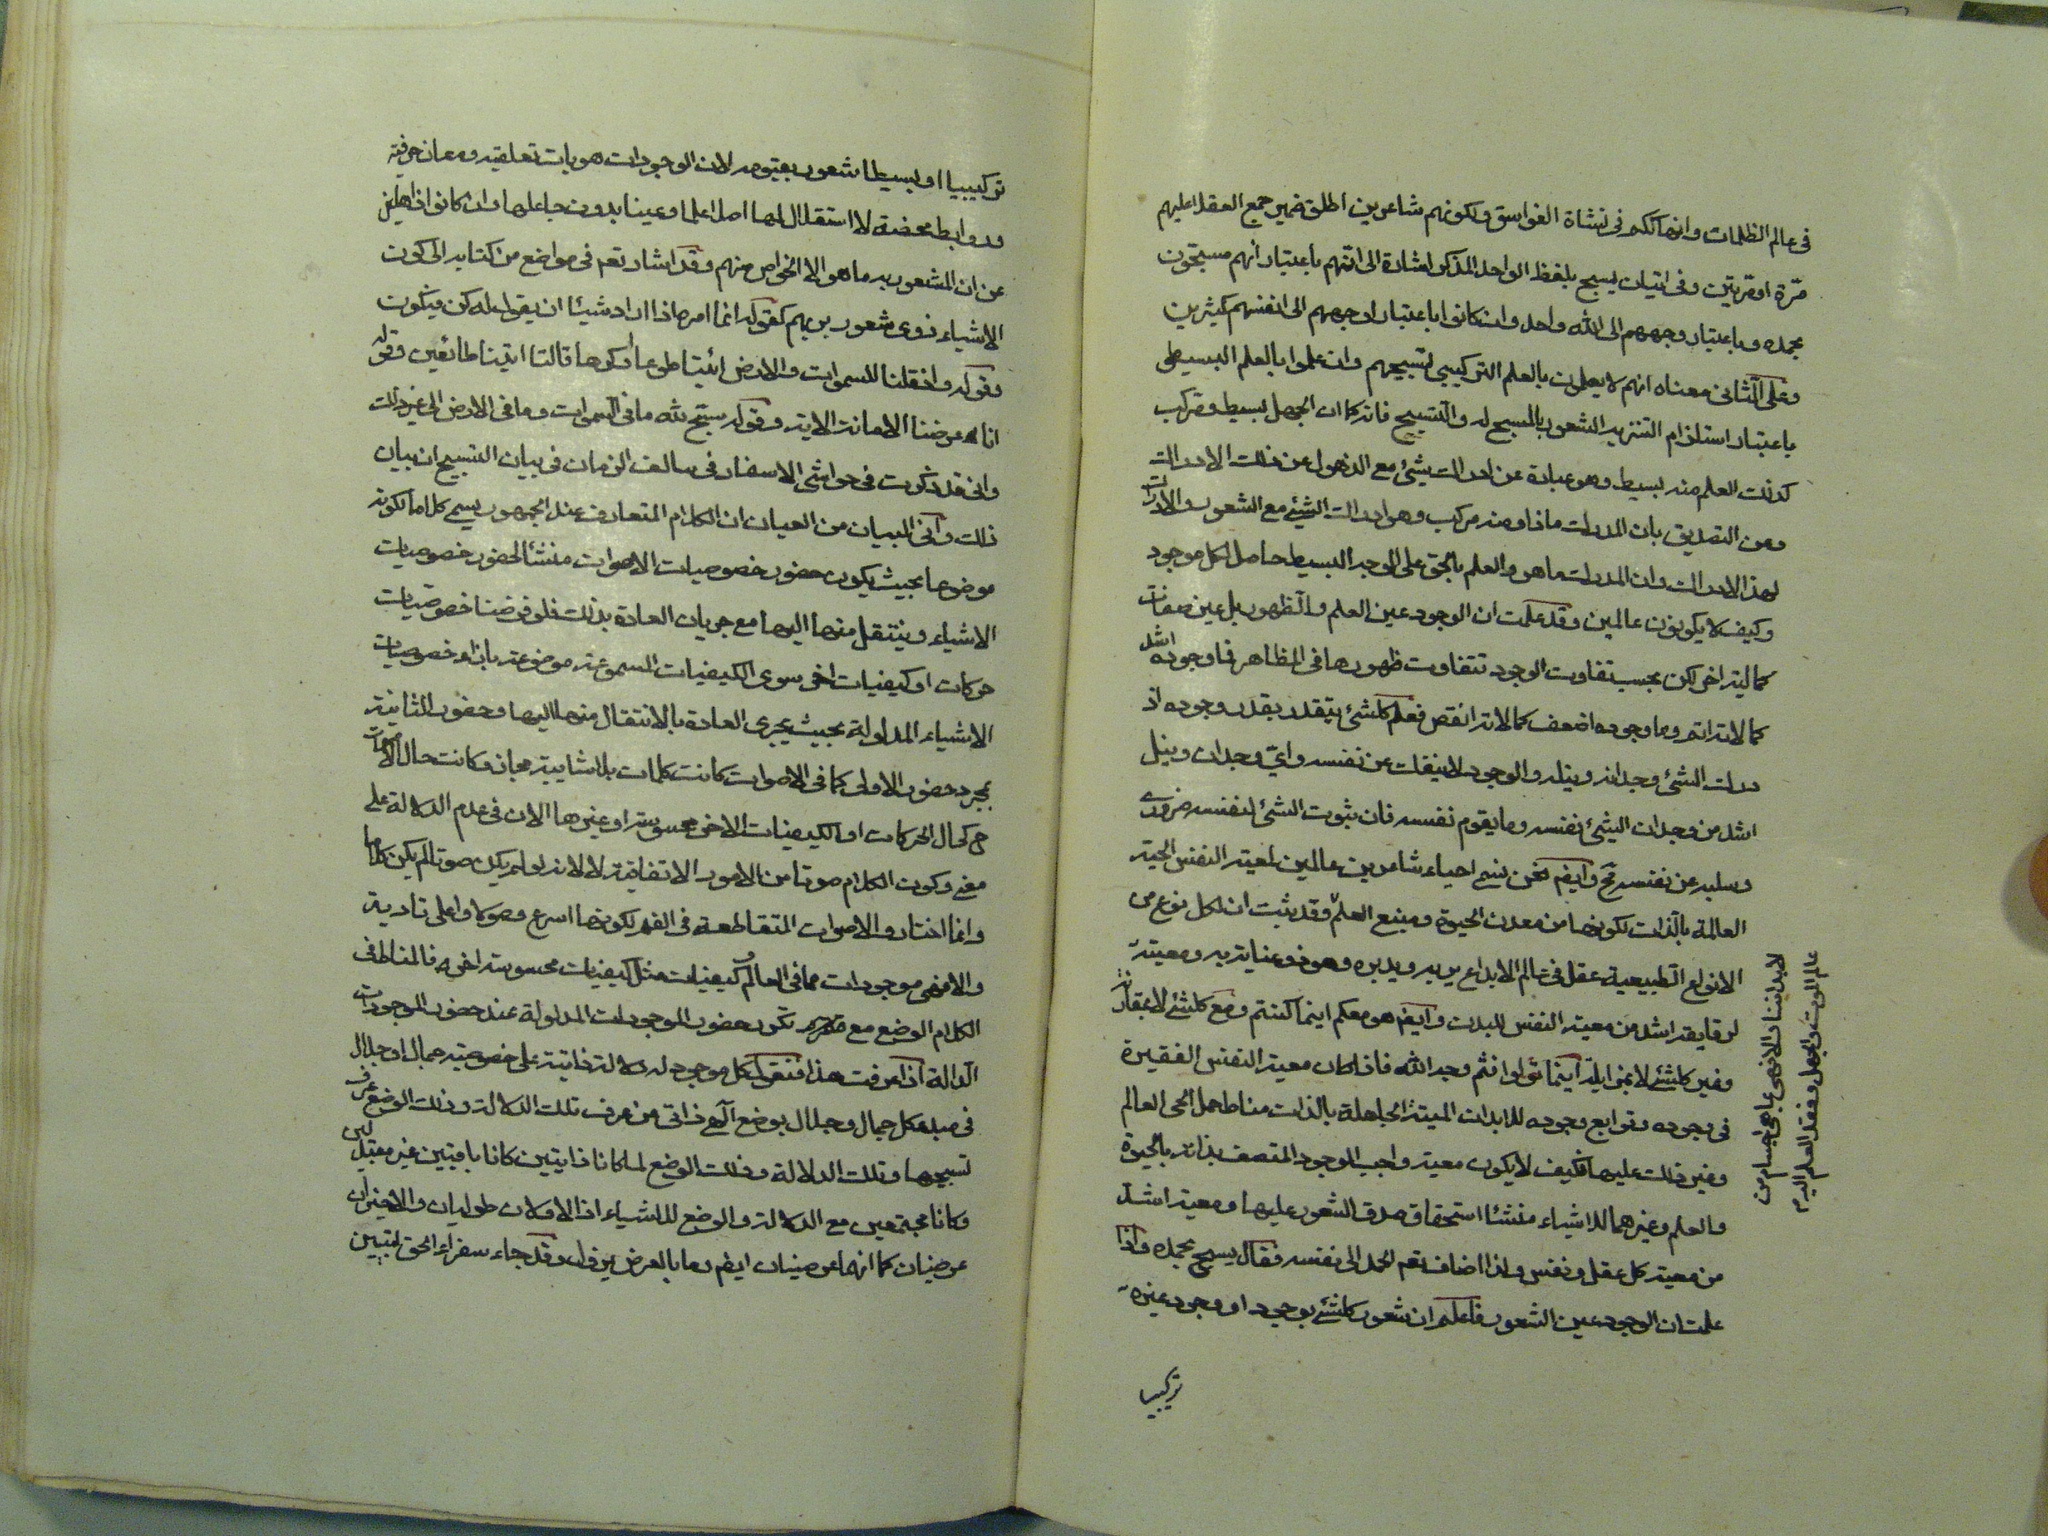 فى عالم الظلمات وانهماكهم فى نشاة الغواسق ولكونهم شاعرين اطلق ضمير جمع العقلا عليهم
مرّة او مرّتين وفى اتيان يسبح بلفظ الواحد المذكر اشارة الى انّهم باعتبار أنهم مسبّحون
بحمده وباعتبار وجههم الى الله واحد وان كانوا باعتبار اوجههم الى انفسهم كثيرين
وعلى الثانى معناه انهم لا يعلمون بالعلم التركيبى تسبيحهم وان علموا بالعلم البسيطى
باعتبار استلزام التنزيه الشعور بالمسبح له والتسبيح فانه كما ان الجهل بسيط ومركب
كذلك العلم منه بسيط وهو عبارة عن ادراك شيئ مع الذهول عن ذلك الادراك
وعن التصديق بان المدرك ماذا ومنه مركب وهو ادراك الشيئ مع الشعور والادراك
لهذا الادراك وان المدرك ما هو والعلم بالحق على الوجه البسيط حاصل لكل موجود
وكيف لا يكونون عالمين وقد علمت ان الوجود عين العلم والظهور بل عين صفات
كمالية اخر لكن بحسب تفاوت الوجود تتفاوت ظهورها فى المظاهر فما وجوده اشد
كمالاته اتم وما وجوده اضعف كمالاته انقص فعلم كلشئ يتقدر بقدر وجوده اذ
درك الشئ وجدانه ونيله والوجود لا ينفك عن نفسه واىّ وجدان ونيل
اشد من وجدان الشئ نفسه وما يقوم نفسه فان ثبوت الشئ لنفسه ضرورى
وسلبه عن نفسه مح وايضم نحن نسمى احياء شاعرين عالمين لمعية النفس الحية
العالمة بالذات لكونها من معدن الحيوة ومنبع العلم وقد يثبت ان لكل نوع من
الانواع الطبيعية عقل فى عالم الابداع يربه ويدبره وهو ذو عناية به ومعيته
لرقايقه اشد من معية النفس للبدن وايضم هو معكم اينما كنتم ومع كلشئ لا بمقارنة
وغير كلشئ لا بمزايلة اينما تولوا فثم وجه الله فاذا كان معية النفس الفقيرة
فى وجوده وتوابع وجوده للابدان الميتة الجاهلة بالذات مناط حمل الحى العالم
وغير ذلك عليها فكيف لا يكون معية واجب الوجود المتصف بذاته بالحيوة
والعلم وغيرهما للاشياء منشئا استحقاق صدق الشعور عليها ومعيته اشد
من معية كل عقل ونفس ولذا اضاف تعم الحمد الى نفسه فقال يسبح بحمده واذا
علمت ان الوجود عين الشعور فاعلم ان شعور كلشئ بوجوده او وجود غيره
تركيبيا
لابداننا والافهى بما هى اجسام من
عالم الموت والجهل وفقد العلم اليه
تركيبيا او بسيطا شعور بقيومه لان الوجودات هويات تعلقيه ومعان حرفية
وروابط محضة لا استقلال لها اصلا علما وعينا بدون جاعلها وان كانوا ذاهلين
عن ان المشعور به ما هو الا الخواص منهم وقد اشار تعم فى مواضع من كتابه الى كون
الاشياء ذوى شعور بربهم كقوله انما امره اذا اراد شيئا ان يقول له كن فيكون
وقوله و فقلنا للسموات والارض ائتيا طوعا أو كرها قالتا اتينا طائعين وقوله
انا عرضنا الامانة الاية وقوله سبّح لله ما فى السموات وما فى الارض الى غير ذلك
وانى قد ذكرت فى حواشى الاسفار فى سالف الزمان فى بيان التسبيح ان بيان
ذلك وانى البيان من العيان ان الكلام المتعارف عند الجمهور يسمى كلاما لكونه
موضوعا بحيث يكون حضور خصوصيات الاصوات منشئا لحضور خصوصيات
الاشياء وينتقل منها اليها مع جريان العادة بذلك فلو فرضنا خصوصيات
حركات او كيفيات اخر سوى الكيفيات المسموعة موضوعة بازاء خصوصيات
الاشياء المدلولة بحيث يجرى العادة بالانتقال منها اليها وحضور الثانية
بمجرد حضور الاولى كما فى الاصوات كانت كلمات بلا شايبة مجاز وكانت حال الاصوات
ح كحال الحركات او الكيفيات الاخر محسوسة او غيرها الان فى عدم الدلالة على
معنى وكون الكلام صوتا من الامور الاتفاقية لا لانه لو لم يكن صوتا لم يكن كلاما
وانما اختاروا الاصوات المتقاطعة فى الفم لكونها اسرع وصولا واعلى تادية
والا فهى موجودات مما فى العالم وكيفيات مثل كيفيات محسوسة اخرى فالمناط فى
الكلام الوضع مع تكون حضور الموجودات المدلولة عند حضور الموجودات
الدالة اذا عرفت هذا فنقول كل موجود له دلالة ذاتية على خصوصية جمال او جلال
فى مبدء كل جمال وجلال بوضع آلهى ذاتى من عرف تلك الدلالة وذلك الوضع عرف
تسبيحها وتلك الدلالة وذلك الوضع لما كانا ذاتيين كانا باقيين غير متبدلين
وكانا مجتمعين مع الدلالة والوضع للاشياء اذ الاولان طوليان والاخيران
عرضيان كما انهما عرضيان ايضم وما بالعرض يزول وقد جاء سفراء الحق لتبيين